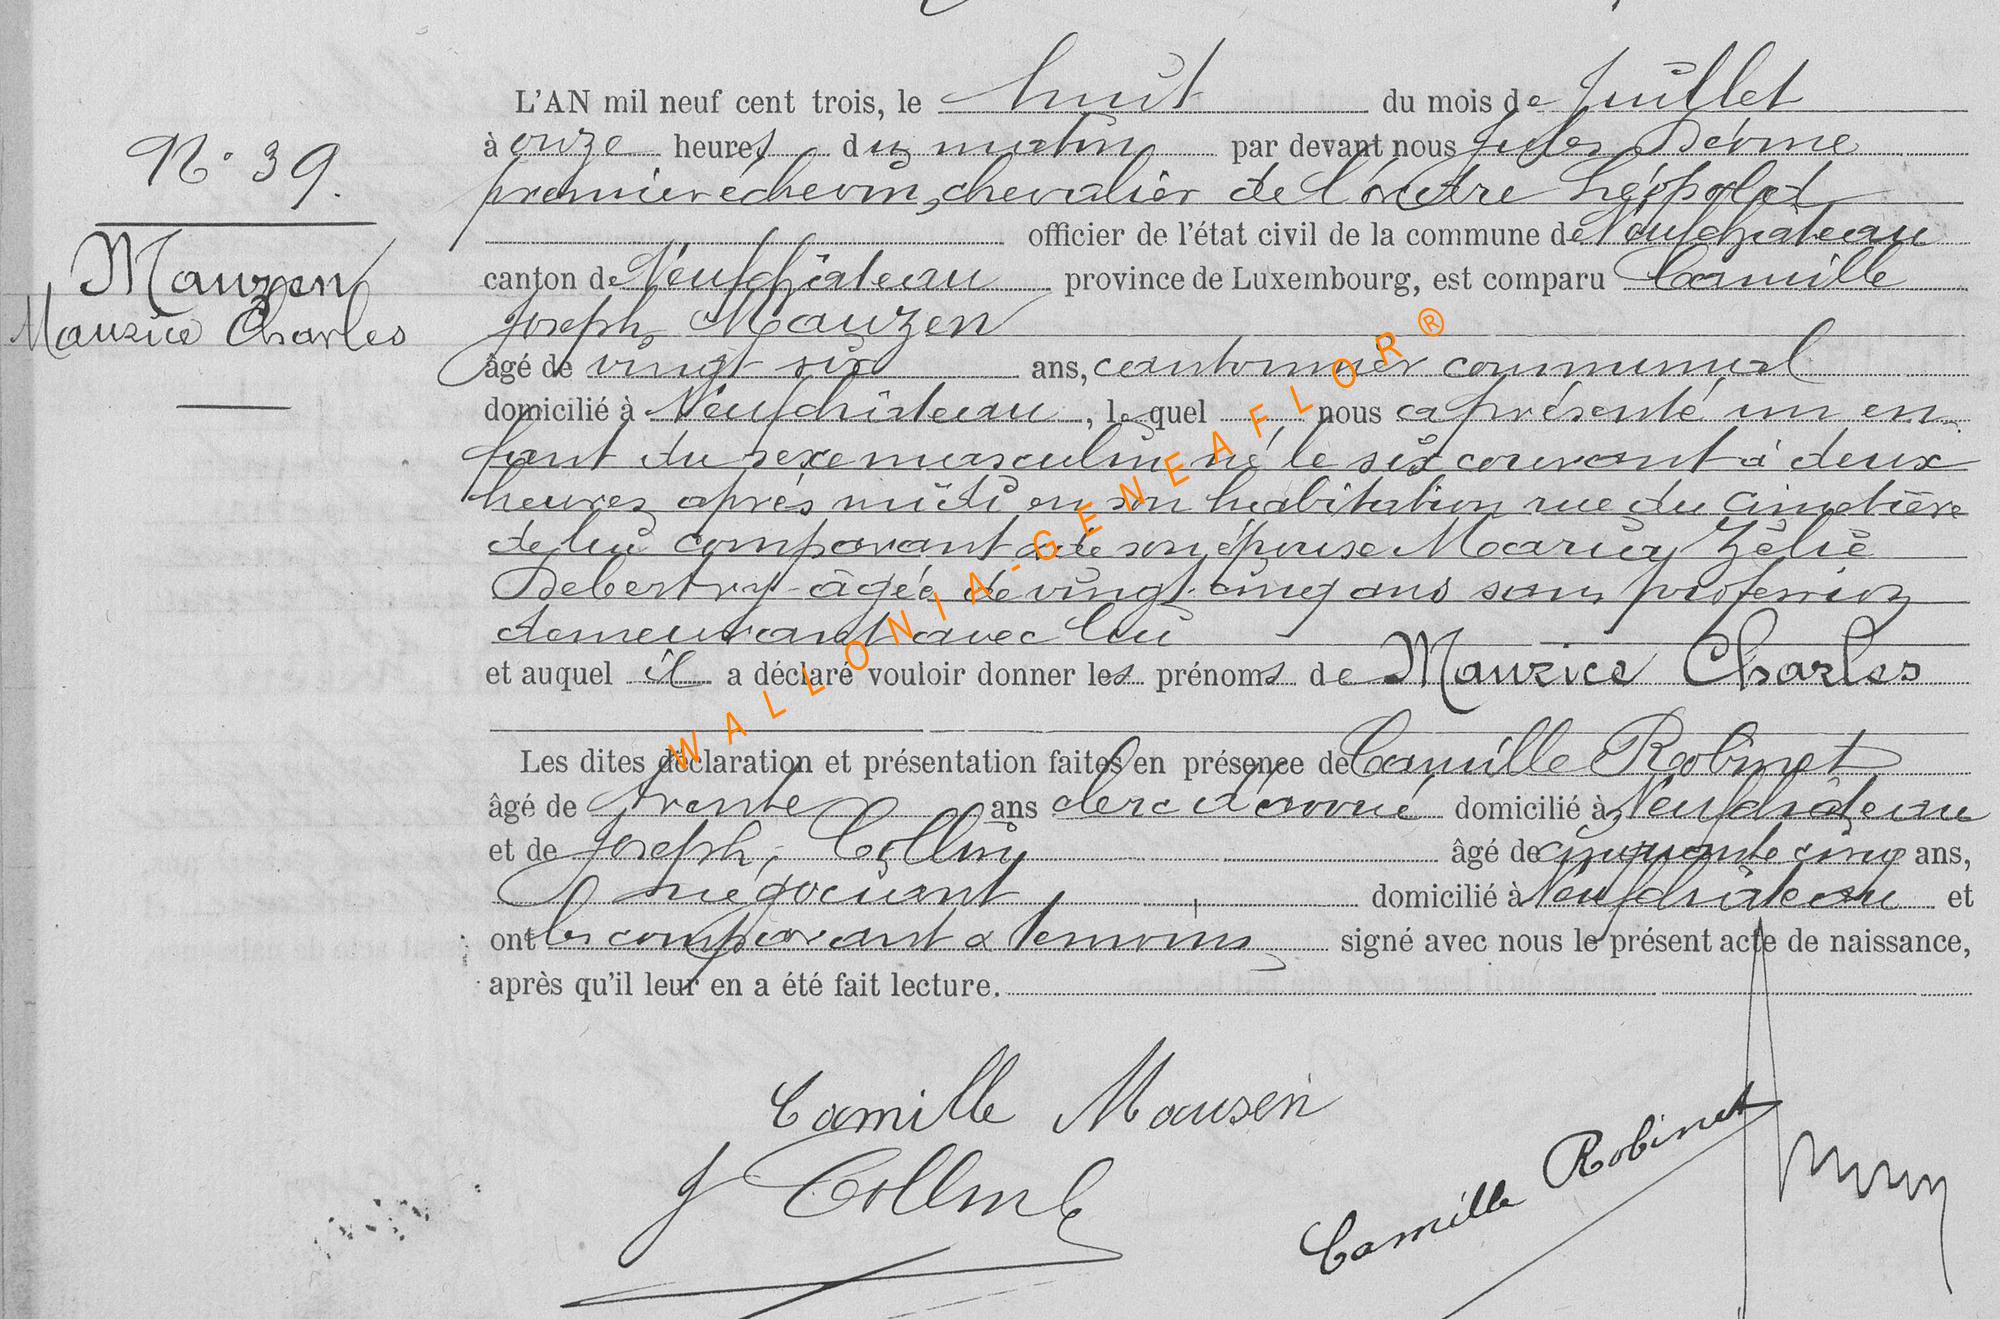 N° 39.
Mauzen
Maurice Charles
L'AN mil neuf cent trois, le huit du mois de Juillet
à onze heures du matin par devant nous Jules Dérome
premier échevin, chevalier de l'ordre Léopold
officier de l'état civil de la commune de Neufchâteau
canton de Neufchâteau province de Luxembourg, est comparu Camille
Joseph Mauzen
âgé de vingt six ans, cantonnier communal
domicilié à Neufchâteau, lequel nous a présenté un en-
fant du sexe masculin né le six courant à deux
heures après midi en son habitation rue du Cimetière
de lui comparant et de son épouse Maria Zélie
Debertry âgée de vingt-cinq ans sans profession
demeurant avec lui
et auquel il a déclaré vouloir donner les prénoms de Maurice Charles
Les dites déclaration et présentation faites en présence de Camille Robinet
âgé de trente ans clerc d'avoué domicilié à Neufchâteau
et de Joseph Collin âgé de cinquante cinq ans,
négociant domicilié à Neufchâteau et
ont les comparant & témoins signé avec nous le présent acte de naissance,
après qu'il leur en a été fait lecture.
Camille Mausen
J Collin
Camille Robinet
WALLONIA-GENEAFLOR®